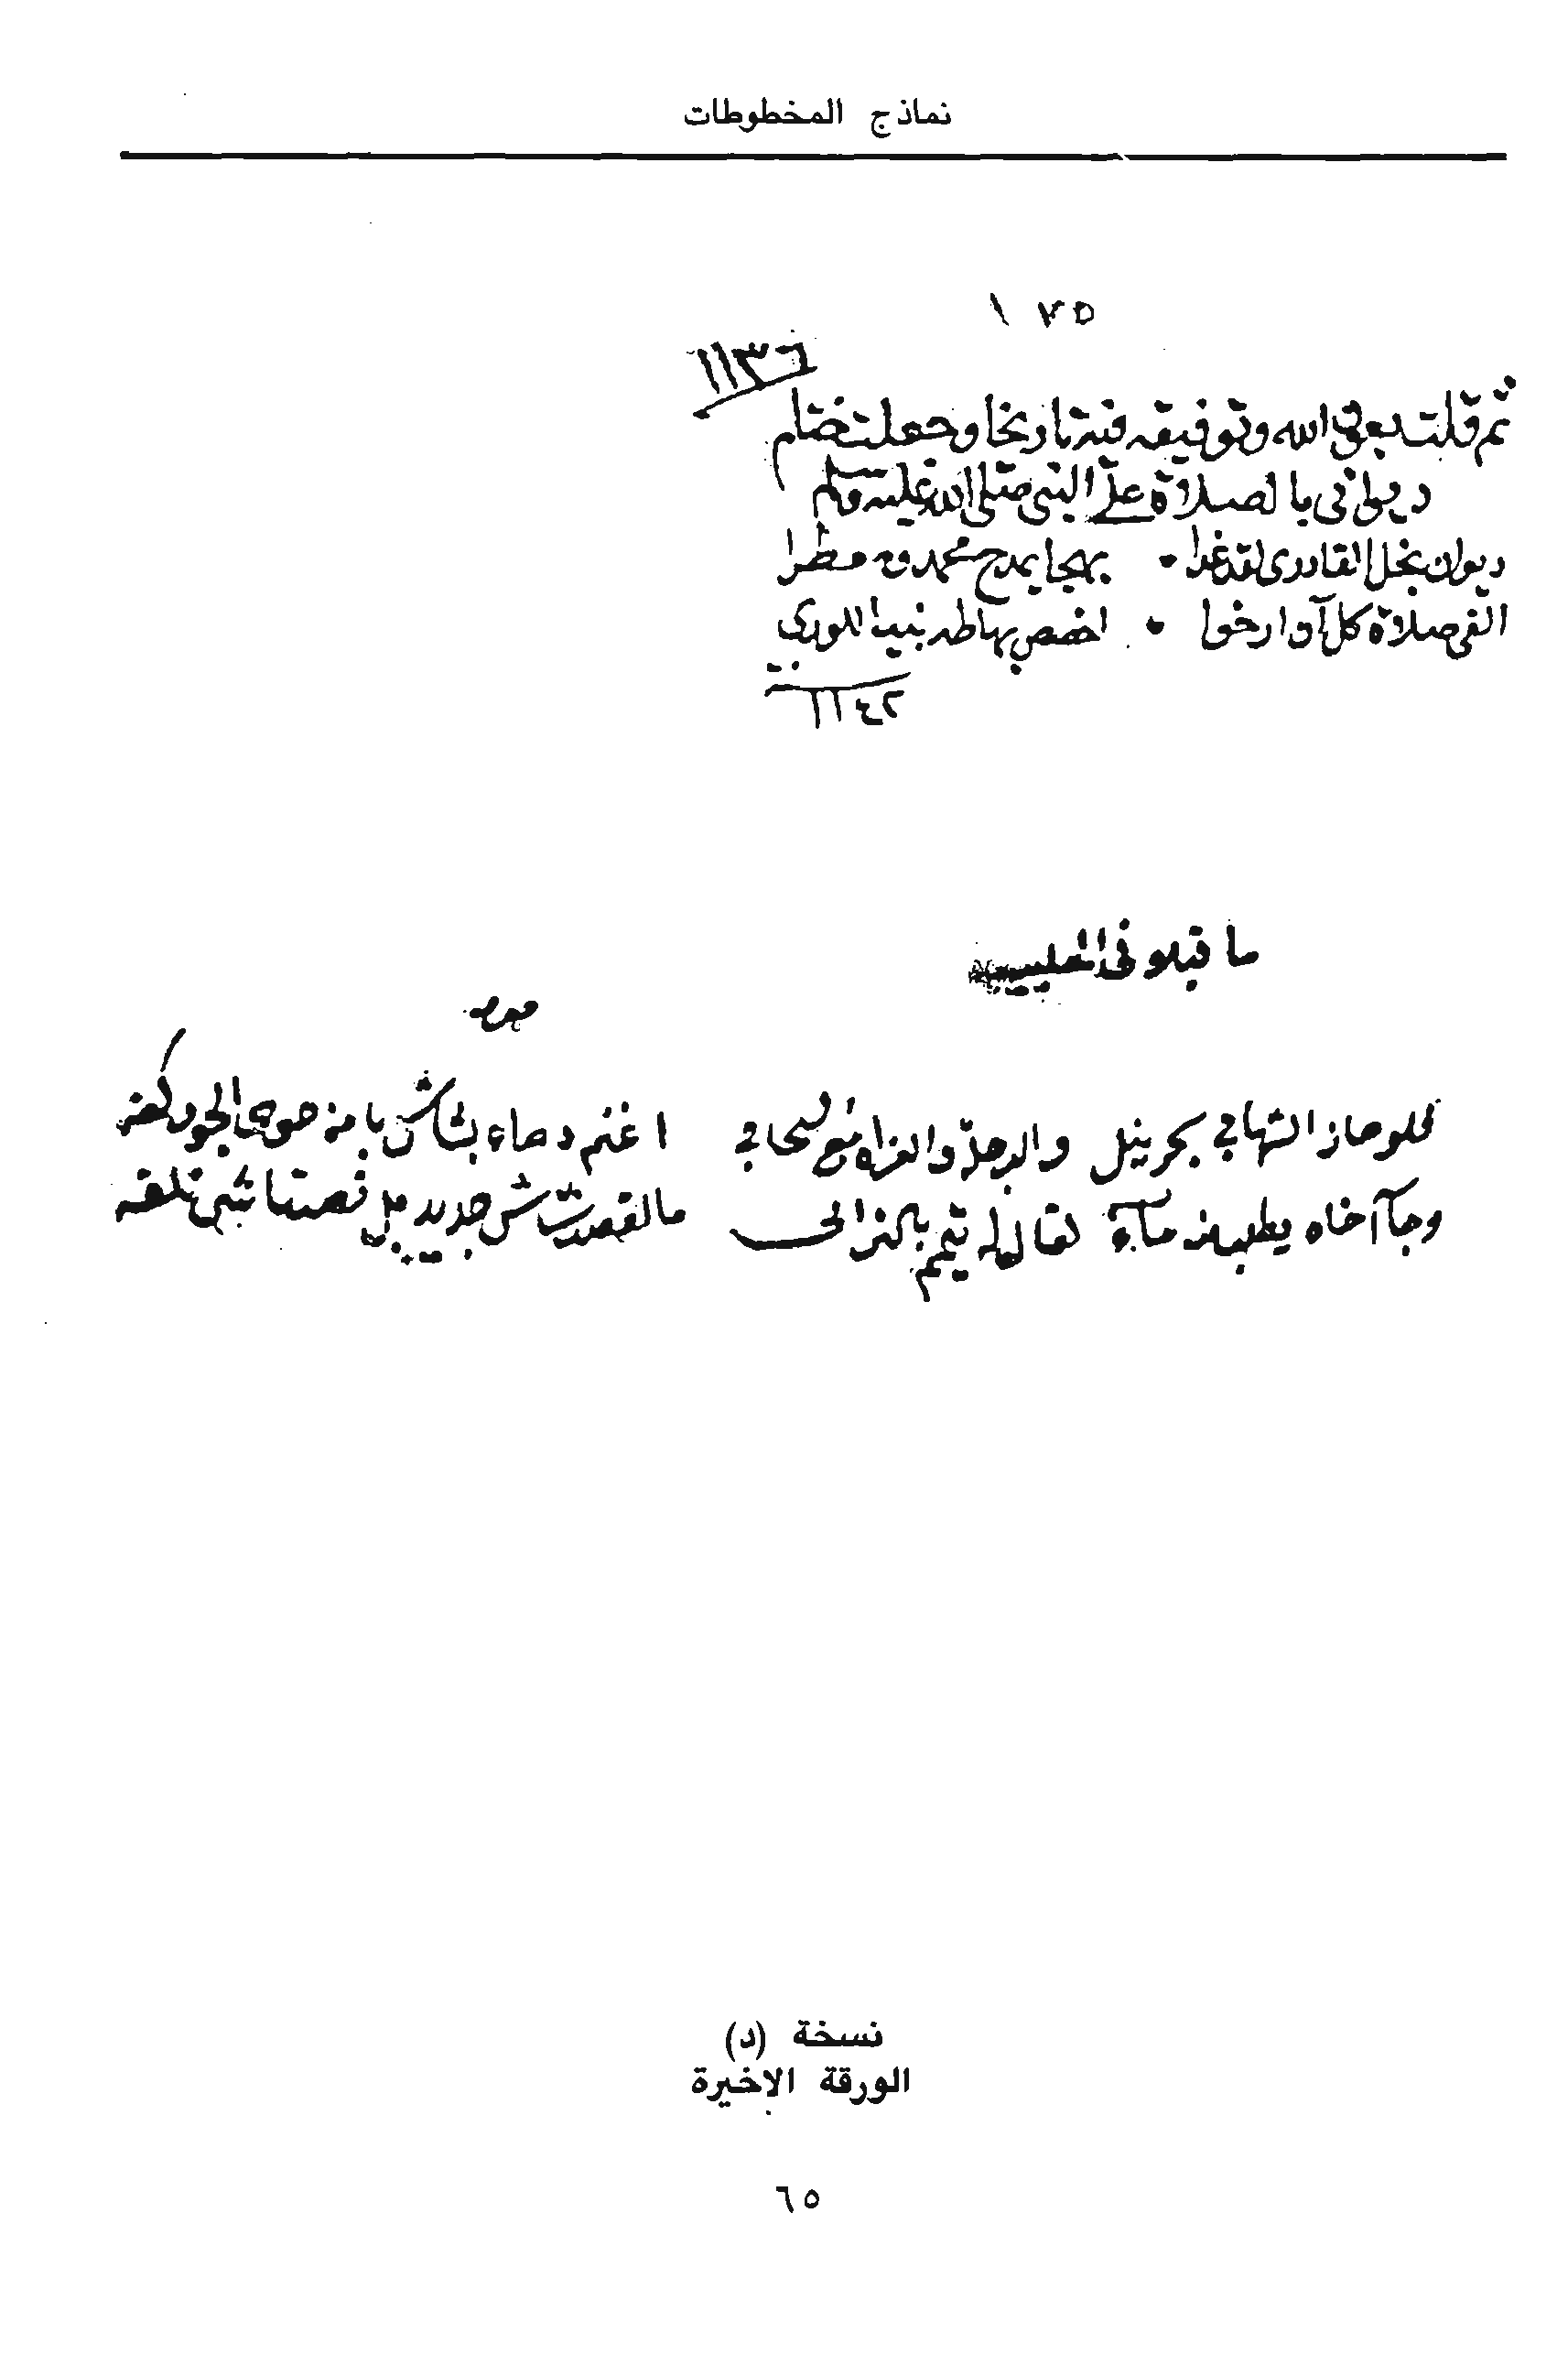 نماذج المخطوطات
١ ٧٥
١١٣٦
ثم قلت بعون الله وتوفيقه فيه تاريخا وجعلت ختام
ديواني بالصلاة على النبي صلى الله عليه وسلم
ديوان نجل القادرى لقد غدا • بهجا بمدح محمد ومطرا
الفي صلاة كل آن ارخوا • اخصص بها طه نبينا للورى
١١٤٢
ما قيل في
فلو حاز التهامي والدجلة والفراة مع
اغنم دعاء يا من حوى الجود كفه
وجا آخاه يطلب منه مآء لقال له تيمم بالتراب
ما القصد شي جديد بل نصف شي تلفه
نسخة (د)
الورقة الاخيرة
٦٥